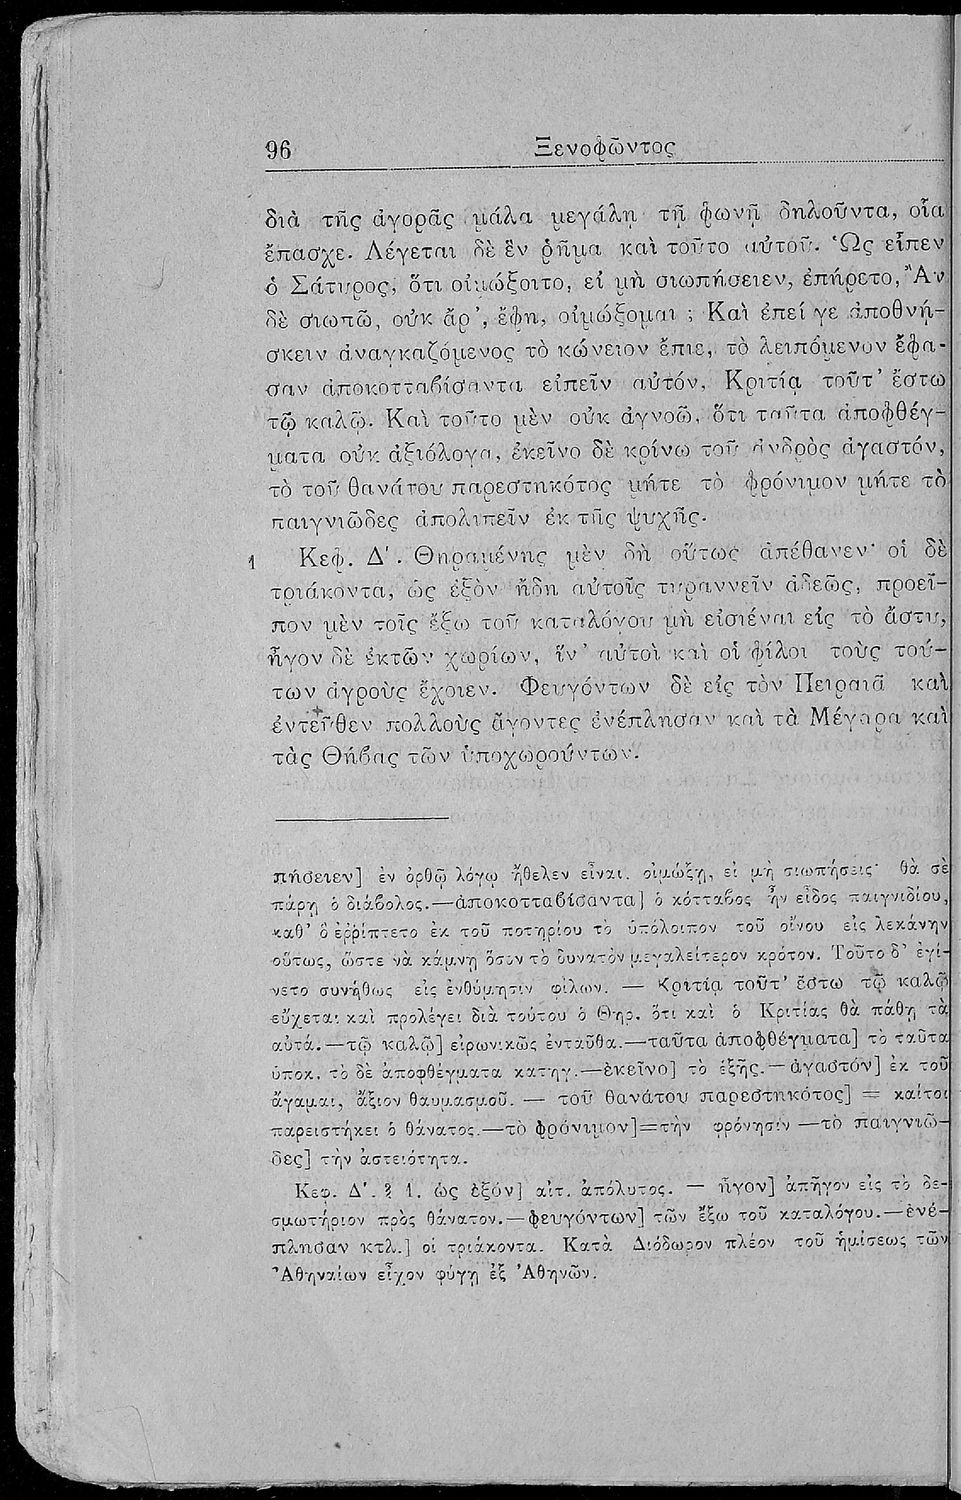 96 Ξενοφῶντος
διὰ τῆς ἀγορᾶς μάλα μεγάλῃ τῇ φωνῇ δηλοῦντα, οἷα
ἔπασχε. Λέγεται δὲ ἓν ῥῆμα καὶ τοῦτο αὐτοῦ. Ὡς εἶπεν
ὁ Σάτυρος, ὅτι οἰμώξοιτο, εἰ μὴ σιωπήσειεν, ἐπήρετο, Ἂν
δὲ σιωπῶ, οὐκ ἄρ', ἔφη, οἰμώξομαι ; Καὶ ἐπεί γε ἀποθνή-
σκειν ἀναγκαζόμενος τὸ κώνειον ἔπιε, τὸ λειπόμενον ἔφα-
σαν ἀποκοτταβίσαντα εἰπεῖν αὐτόν, Κριτίᾳ τοῦτ' ἔστω
τῷ καλῷ. Καὶ τοῦτο μὲν οὐκ ἀγνοῶ, ὅτι ταῦτα ἀποφθέγ-
ματα οὐκ ἀξιόλογα, ἐκεῖνο δὲ κρίνω τοῦ ἀνδρὸς ἀγαστόν,
τὸ τοῦ θανάτου παρεστηκότος μήτε τὸ φρόνιμον μήτε τὸ
παιγνιῶδες ἀπολιπεῖν ἐκ τῆς ψυχῆς.
1 Κεφ. Δ'. Θηραμένης μὲν δὴ οὕτως ἀπέθανεν· οἱ δὲ
τριάκοντα, ὡς ἐξὸν ἤδη αὐτοῖς τυραννεῖν ἀδεῶς, προεῖ-
πον μὲν τοῖς ἔξω τοῦ καταλόγου μὴ εἰσιέναι εἰς τὸ ἄστυ,
ἦγον δὲ ἐκτῶν χωρίων, ἵν' αὐτοὶ καὶ οἱ φίλοι τοὺς τού-
των ἀγροὺς ἔχοιεν. Φευγόντων δὲ εἰς τὸν Πειραιᾶ καὶ
ἐντεῦθεν πολλοὺς ἄγοντες ἐνέπλησαν καὶ τὰ Μέγαρα καὶ
τὰς Θήβας τῶν ὑποχωρούντων.
πήσειεν] ἐν ὀρθῷ λόγῳ ἤθελεν εἶναι. οἰμώξῃ, εἰ μὴ σιωπήσεις· θὰ σὲ
πάρῃ ὁ διάβολος.—ἀποκοτταβίσαντα] ὁ κότταβος ἦν εἶδος παιγνιδίου,
καθ' ὃ ἐρρίπτετο ἐκ τοῦ ποτηρίου τὸ ὑπόλοιπον τοῦ οἴνου εἰς λεκάνην
οὕτως, ὥστε νὰ κάμνῃ ὅσον τὸ δυνατὸν μεγαλείτερον κρότον. Τοῦτο δ' ἐγί-
νετο συνήθως εἰς ἐνθύμησιν φίλων. — Κριτίᾳ τοῦτ' ἔστω τῷ καλῷ
εὔχεται καὶ προλέγει διὰ τούτου ὁ Θηρ. ὅτι καὶ ὁ Κριτίας θὰ πάθῃ τὰ
αὐτά.—τῷ καλῷ] εἰρωνικῶς ἐνταῦθα.—ταῦτα ἀποφθέγματα] τὸ ταῦτα
ὑποκ. τὸ δὲ ἀποφθέγματα κατηγ.—ἐκεῖνο] τὸ ἑξῆς.—ἀγαστόν] ἐκ τοῦ
ἄγαμαι, ἄξιον θαυμασμοῦ. — τοῦ θανάτου παρεστηκότος] = καίτοι
παρειστήκει ὁ θάνατος.—τὸ φρόνιμον]=τὴν φρόνησιν —τὸ παιγνιῶ-
δες] τὴν ἀστειότητα.
Κεφ. Δ'. § 1. ὡς ἐξόν] αἰτ. ἀπόλυτος. — ἦγον] ἀπῆγον εἰς τὸ δε-
σμωτήριον πρὸς θάνατον.—φευγόντων] τῶν ἔξω τοῦ καταλόγου.—ἐνέ-
πλησαν κτλ.] οἱ τριάκοντα. Κατὰ Διόδωρον πλέον τοῦ ἡμίσεως τῶν
Ἀθηναίων εἶχον φύγῃ ἐξ Ἀθηνῶν.